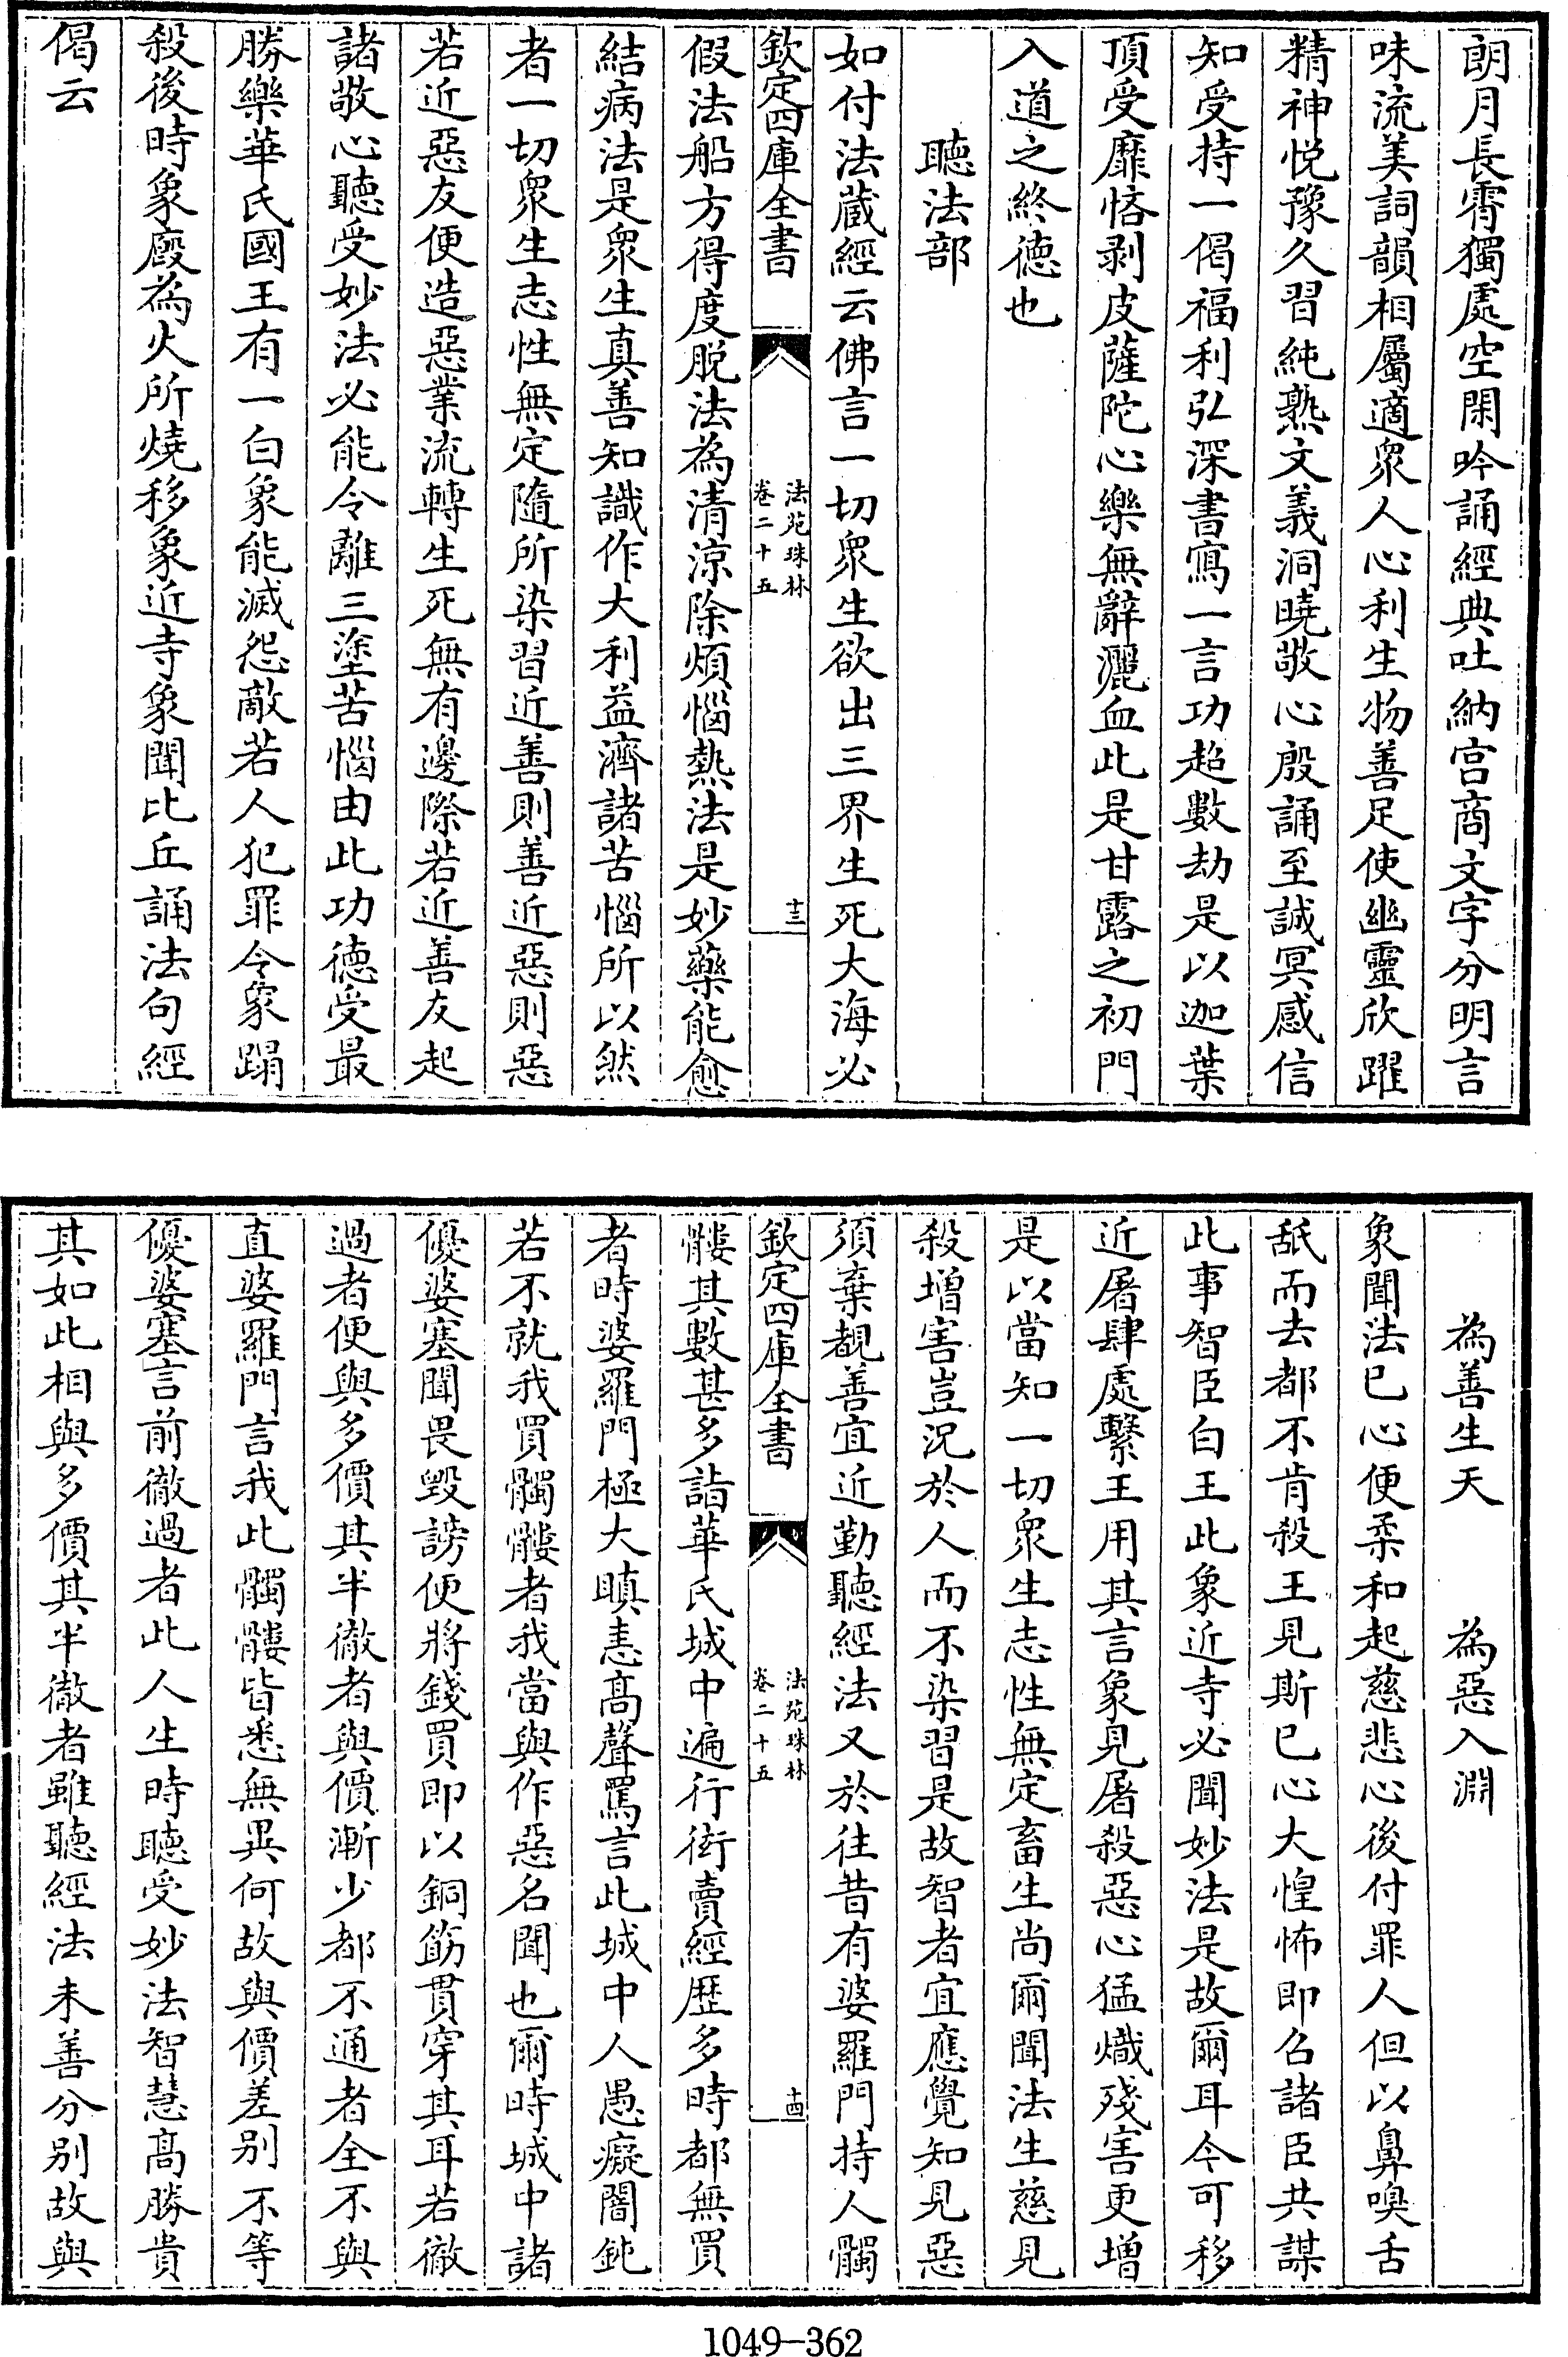 朗月長霄獨處空閑吟誦經典吐納宫商文字分明言
味流美詞韻相屬適衆人心利生物善足使幽靈欣躍
精神悦豫久習純熟文義洞曉敬心殷誦至誠冥感信
知受持一偈福利弘深書寫一言功超數劫是以迦葉
頂受靡悋剥皮薩陀心樂無辭灑血此是甘露之初門
入道之終德也
聽法部
如付法蔵經云佛言一切衆生欲出三界生死大海必
欽定四庫全書
法苑珠林
卷二十五
十三
假法船方得度脱法為清涼除煩惱熱法是妙藥能愈
結病法是衆生真善知識作大利益濟諸苦惱所以然
者一切衆生志性無定隨所染習近善則善近惡則惡
若近惡友便造惡業流轉生死無有邊際若近善友起
諸敬心聽受妙法必能令離三塗苦惱由此功德受最
勝樂華氏國王有一白象能滅怨敵若人犯罪令象蹋
殺後時象廐為火所燒移象近寺象聞比丘誦法句經
偈云
為善生天　為惡入淵
象聞法已心便柔和起慈悲心後付罪人但以鼻嗅舌
舐而去都不肯殺王見斯已心大惶怖即召諸臣共謀
此事智臣白王此象近寺必聞妙法是故爾耳今可移
近屠肆處繫王用其言象見屠殺惡心猛熾殘害更增
是以當知一切衆生志性無定畜生尚爾聞法生慈見
殺增害豈況於人而不染習是故智者宜應覺知見惡
須棄覩善宜近勤聽經法又於往昔有婆羅門持人髑
欽定四庫全書
法苑珠林
卷二十五
十四
髏其數甚多詣華氏城中遍行衒賣經歴多時都無買
者時婆羅門極大瞋恚髙聲罵言此城中人愚癡闇鈍
若不就我買髑髏者我當與作惡名聞也爾時城中諸
優婆塞聞畏毁謗便將錢買即以銅筯貫穿其耳若徹
過者便與多價其半徹者與價漸少都不通者全不與
直婆羅門言我此髑髏皆悉無異何故與價差别不等
優婆塞言前徹過者此人生時聽受妙法智慧髙勝貴
其如此相與多價其半徹者雖聽經法未善分别故與
1049-362